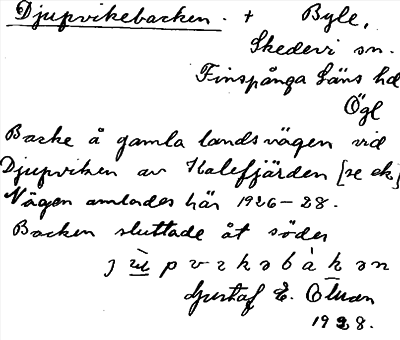 Djupvikebacken. + Byle,
Skedevi sn.
Finspånga Läns hd
Ögl
Backe å gamla landsvägen vid
Djupviken av Kalefjärden [se ek.]
Vägen omlades här 1926–28.
Backen sluttade åt söder
Gustaf E.
1928.